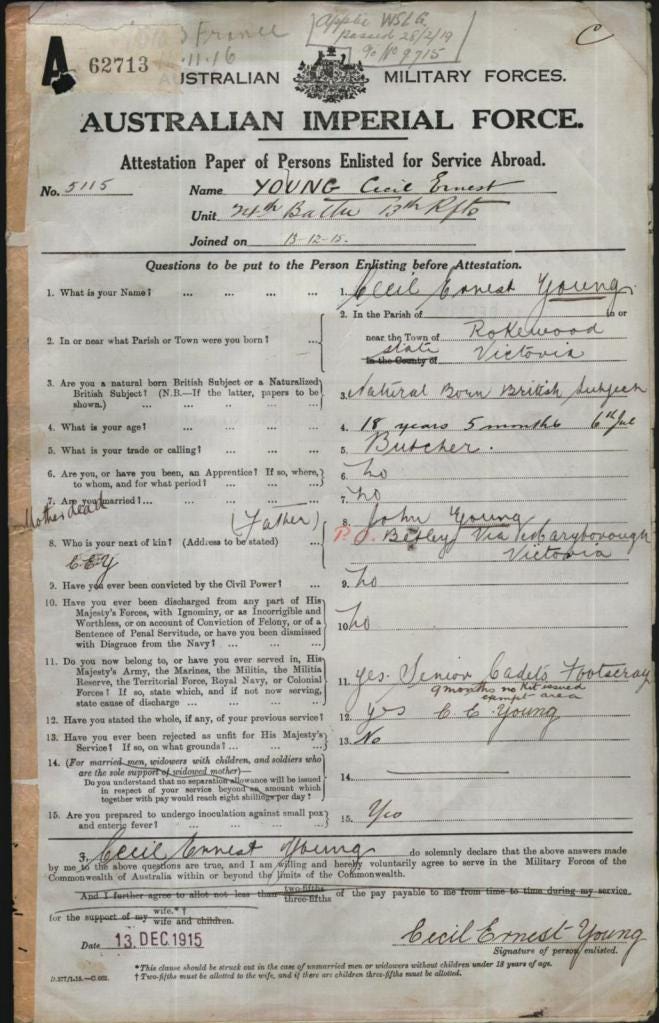 France
11.16
Applic WSLG
passed 28/2/19
9715
C
A 62713
AUSTRALIAN MILITARY FORCES.
AUSTRALIAN IMPERIAL FORCE.
Attestation Paper of Persons Enlisted for Service Abroad.
No. 5115 Name YOUNG Cecil Ernest
Unit 24th Battn 13th Rfts
Joined on 13-12-15.
Questions to be put to the Person Enlisting before Attestation.
1. What is your Name? ... ... ... ... 1. Cecil Ernest Young.
2. In or near what Parish or Town were you born? ... 2. In the Parish of in or
near the Town of Rokewood
state in the County of Victoria
3. Are you a natural born British Subject or a Naturalized
British Subject? (N.B.—If the latter, papers to be
shown.) ... ... ... ... 3. Natural Born British Subject
4. What is your age? ... ... ... ... 4. 18 years 5 months 6th Jul
5. What is your trade or calling? ... ... ... 5. Butcher.
6. Are you, or have you been, an Apprentice? If so, where,
to whom, and for what period? ... ... ... 6. No
7. Are you married? ... ... ... ... 7. No
Mother dead
8. Who is your next of kin? (Address to be stated) ... (Father) 8. John Young
P.O. Betley Via Maryborough
Victoria
C.E.Y
9. Have you ever been convicted by the Civil Power? ... 9. No
10. Have you ever been discharged from any part of His
Majesty's Forces, with Ignominy, or as Incorrigible and
Worthless, or on account of Conviction of Felony, or of a
Sentence of Penal Servitude, or have you been dismissed
with Disgrace from the Navy? ... ... ... 10. No
11. Do you now belong to, or have you ever served in, His
Majesty's Army, the Marines, the Militia, the Militia
Reserve, the Territorial Force, Royal Navy, or Colonial
Forces? If so, state which, and if not now serving,
state cause of discharge ... ... ... ... 11. yes. Senior Cadets Footscray
9 months no Kit issued
exempt area
12. Have you stated the whole, if any, of your previous service? 12. yes C E Young
13. Have you ever been rejected as unfit for His Majesty's
Service? If so, on what grounds? ... ... ... 13. No
14. (For married men, widowers with children, and soldiers who
are the sole support of widowed mother)—
Do you understand that no separation allowance will be issued
in respect of your service beyond an amount which
together with pay would reach eight shillings per day? 14.
15. Are you prepared to undergo inoculation against small pox
and enteric fever? ... ... ... ... 15. Yes
3. Cecil Ernest Young do solemnly declare that the above answers made
by me to the above questions are true, and I am willing and hereby voluntarily agree to serve in the Military Forces of the
Commonwealth of Australia within or beyond the limits of the Commonwealth.
And I further agree to allot not less than two-fifths three-fifths of the pay payable to me from time to time during my service
for the support of my wife.*† wife and children.
Date 13 DEC 1915 Cecil Ernest Young
Signature of person enlisted.
*This clause should be struck out in the case of unmarried men or widowers without children under 18 years of age.
† Two-fifths must be allotted to the wife, and if there are children three-fifths must be allotted.
D.377/1.15.—C.662.